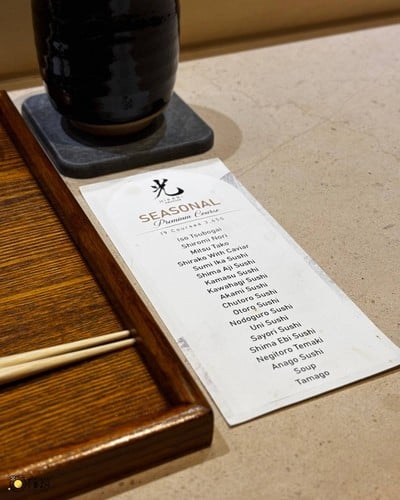 光
SEASONAL
Premium Course
19 Courses
Iso Tsubogai
Shiromi Nori
Mitsu Tako
Shirako With Caviar
Sumi Ika Sushi
Shima Aji Sushi
Kamasu Sushi
Kawahagi Sushi
Akami Sushi
Chutoro Sushi
Otorg Sushi
Nodoguro Sushi
Uni Sushi
Sayori Sushi
Shima Ebi Sushi
Negitoro Temaki
Anago Sushi
Soup
Tamago